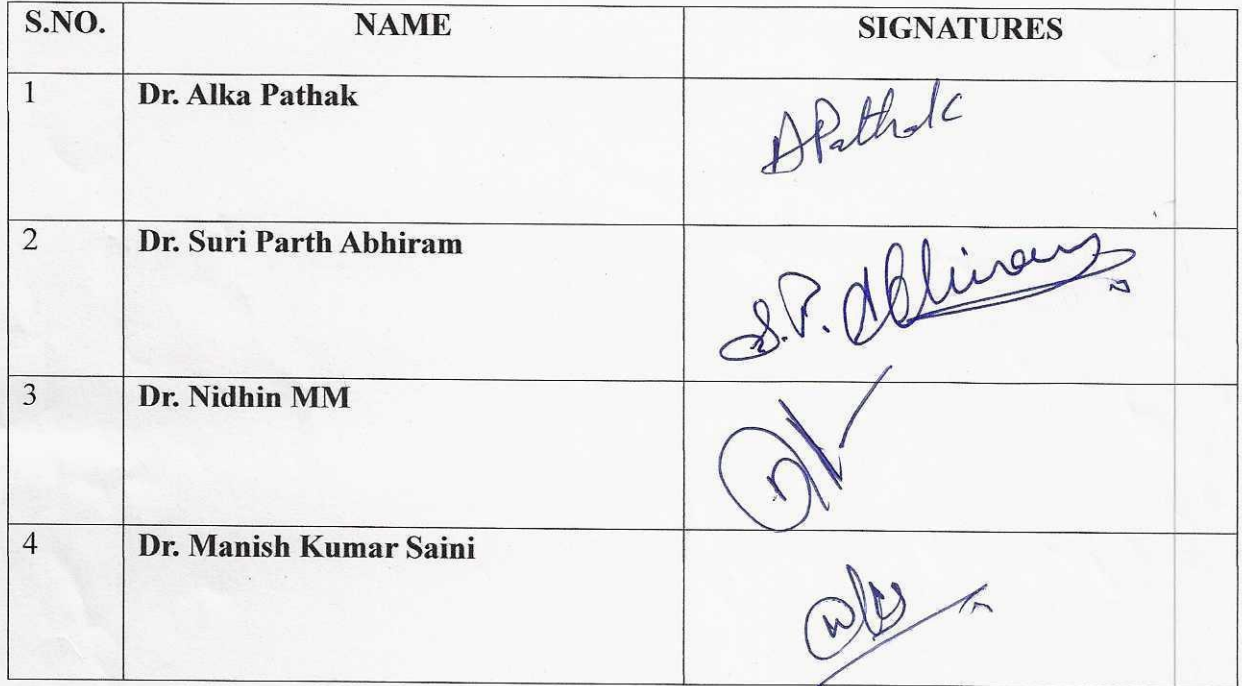 S.NO. NAME SIGNATURES
1 Dr. Alka Pathak APathak
2 Dr. Suri Parth Abhiram S.P. Abhiram
3 Dr. Nidhin MM
4 Dr. Manish Kumar Saini